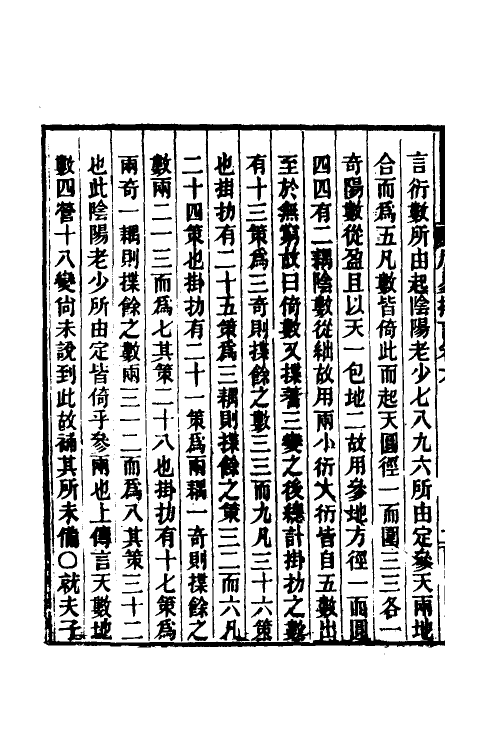 言衍數所由起陰陽老少七八九六所由定參天兩地
合而為五凡數皆倚此而起天圓徑一而圍三三各一
奇陽數從盈且以天一包地二故用參地方徑一而圍
四四有二耦陰數從絀故用兩小衍大衍皆自五數出
至於無窮故曰倚數又揲蓍三變之後總計掛扐之數
有十三策為三奇則揲餘之數三三而九凡三十六策
也掛扐有二十五策為三耦則揲餘之策三二而六凡
二十四策也掛扐有二十一策為兩耦一奇則揲餘之
數兩二一三而為七其策二十八也掛扐有十七策為
兩奇一耦則揲餘之數兩三一二而為八其策三十二
也此陰陽老少所由定皆倚乎參兩也上傳言天數地
數四營十八變尙未說到此故補其所未備○就夫子